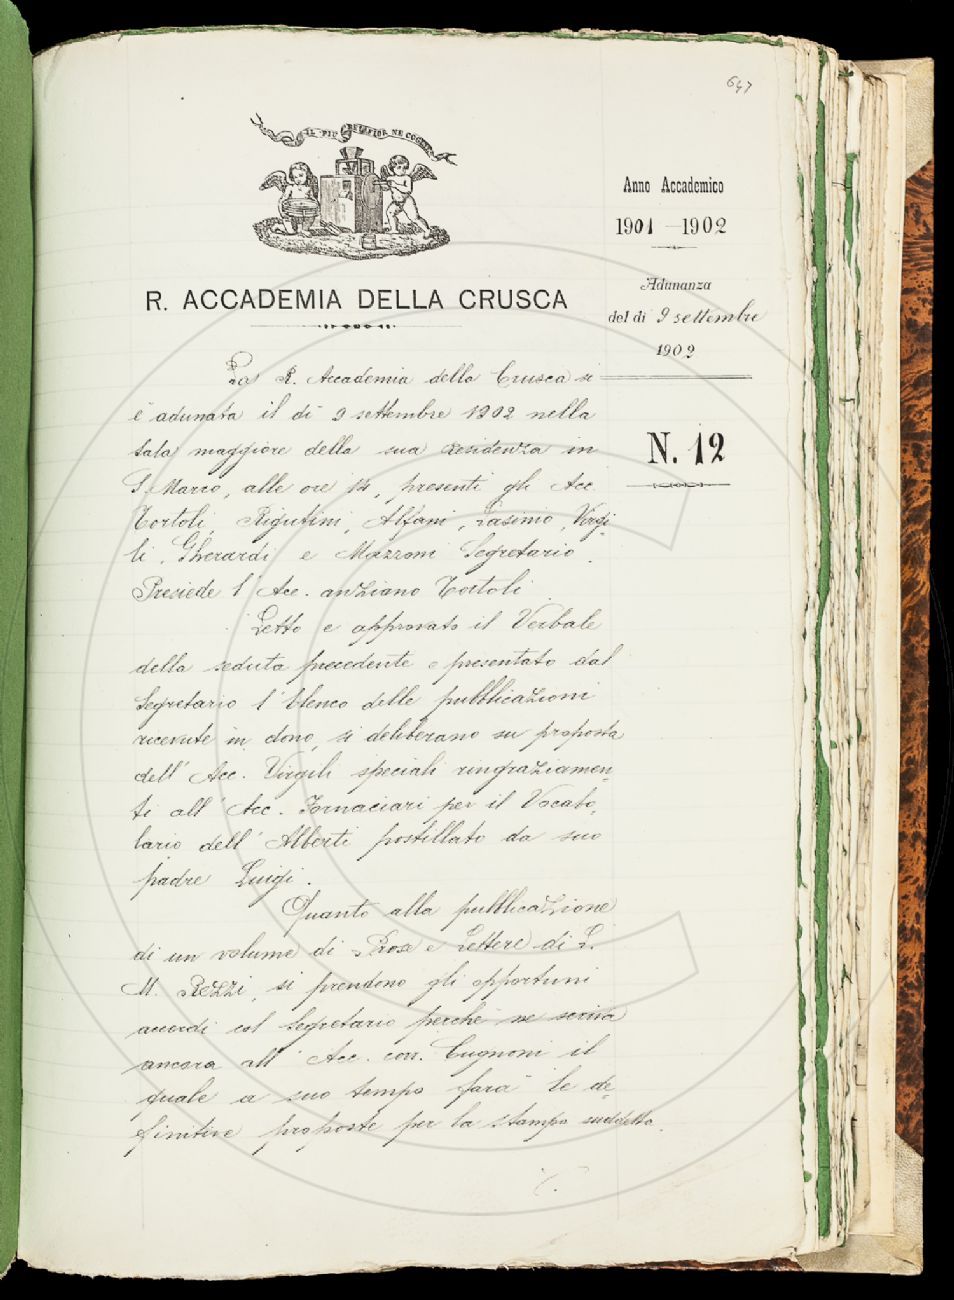 647
IL PIÙ BEL FIOR NE COGLIE
Anno Accademico
1901 - 1902
Adunanza
del dì 9 settembre
1902
N. 12
R. ACCADEMIA DELLA CRUSCA
La R. Accademia della Crusca si
è adunata il dì 9 settembre 1902 nella
sala maggiore della sua residenza in
S. Marco, alle ore 14, presenti gli Acc.
Tortoli, Rigutini, Alfani, Lasinio, Virgi-
li, Gherardi e Mazzoni Segretario.
Presiede l'Acc. anziano Tortoli.
Letto e approvato il Verbale
della seduta precedente e presentato dal
Segretario l'Elenco delle pubblicazioni
ricevute in dono, si deliberano su proposta
dell'Acc. Virgili speciali ringraziamen-
ti all'Acc. Fornaciari per il Vocabo-
lario dell'Alberti postillato da suo
padre Luigi.
Quanto alla pubblicazione
di un volume di Prose e Lettere di L.
M. Rezzi, si prendono gli opportuni
accordi col Segretario perchè ne scriva
ancora all'Acc. corr. Cugnoni il
quale a suo tempo farà le de-
finitive proposte per la stampa suddetta.